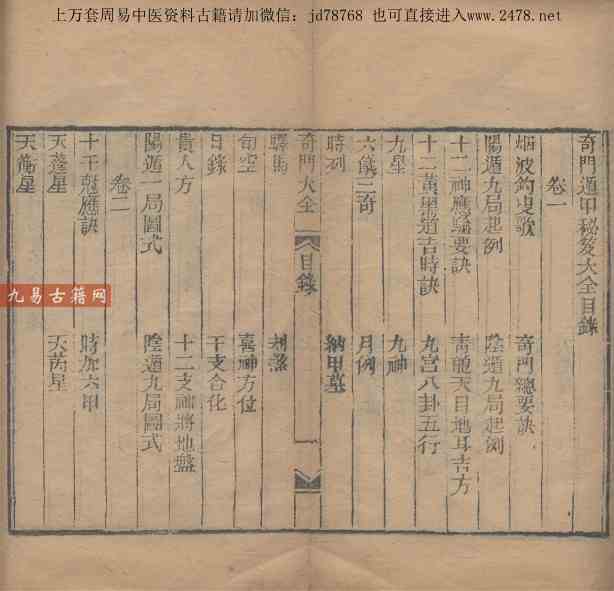 上万套周易中医资料古籍请加微信：jd78768 也可直接进入www.2478.net
奇門遁甲秘笈大全目錄
卷一
烟波釣叟歌 奇門總要訣
陽遁九局起例 陰遁九局起例
十二神應驗要訣 青龍天目地耳吉方
十二黃黑道吉時訣 九宮八卦五行
九星 九神
六儀三奇 月例
時刻 納甲墓
奇門大全 目錄
驛馬 刑德
旬空 喜神方位
日錄 干支合化
貴人方 十二支神將地盤
陽遁一局圖式 陰遁九局圖式
卷二
十干剋應訣 時加六甲
天蓬星 天芮星
天衝星
九易古籍网